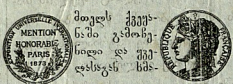 EXPOSITION UNIVERSELLE INTERNATIONALE
MENTION
HONORABLE
PARIS
1878
მთელს ქვეყა-
ნაში გამოჩე-
ნილი და ყვე-
ლასაგან ხმა-
REPUBLIQUE FRANÇAISE